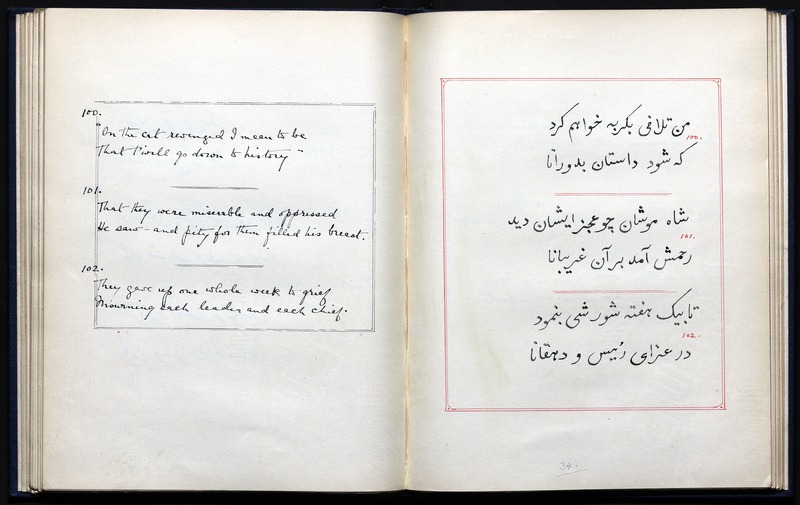 100.
"On the cat revenged I mean to be
That t'will go down to history"
101.
That they were miserable and oppressed
He saw - and pity for them filled his breast.
102.
They gave up one whole week to grief
Mourning each leader and each chief.
من تلافی بگربه خواهم کرد
100.
که شود داستان بدورانا
شاه موشان چو عجز ایشان دید
101.
رحمش آمد بر آن غریبانا
تا بیک هفته شور شی بنمود
102.
در عزای رئیس و دهقانا
34.